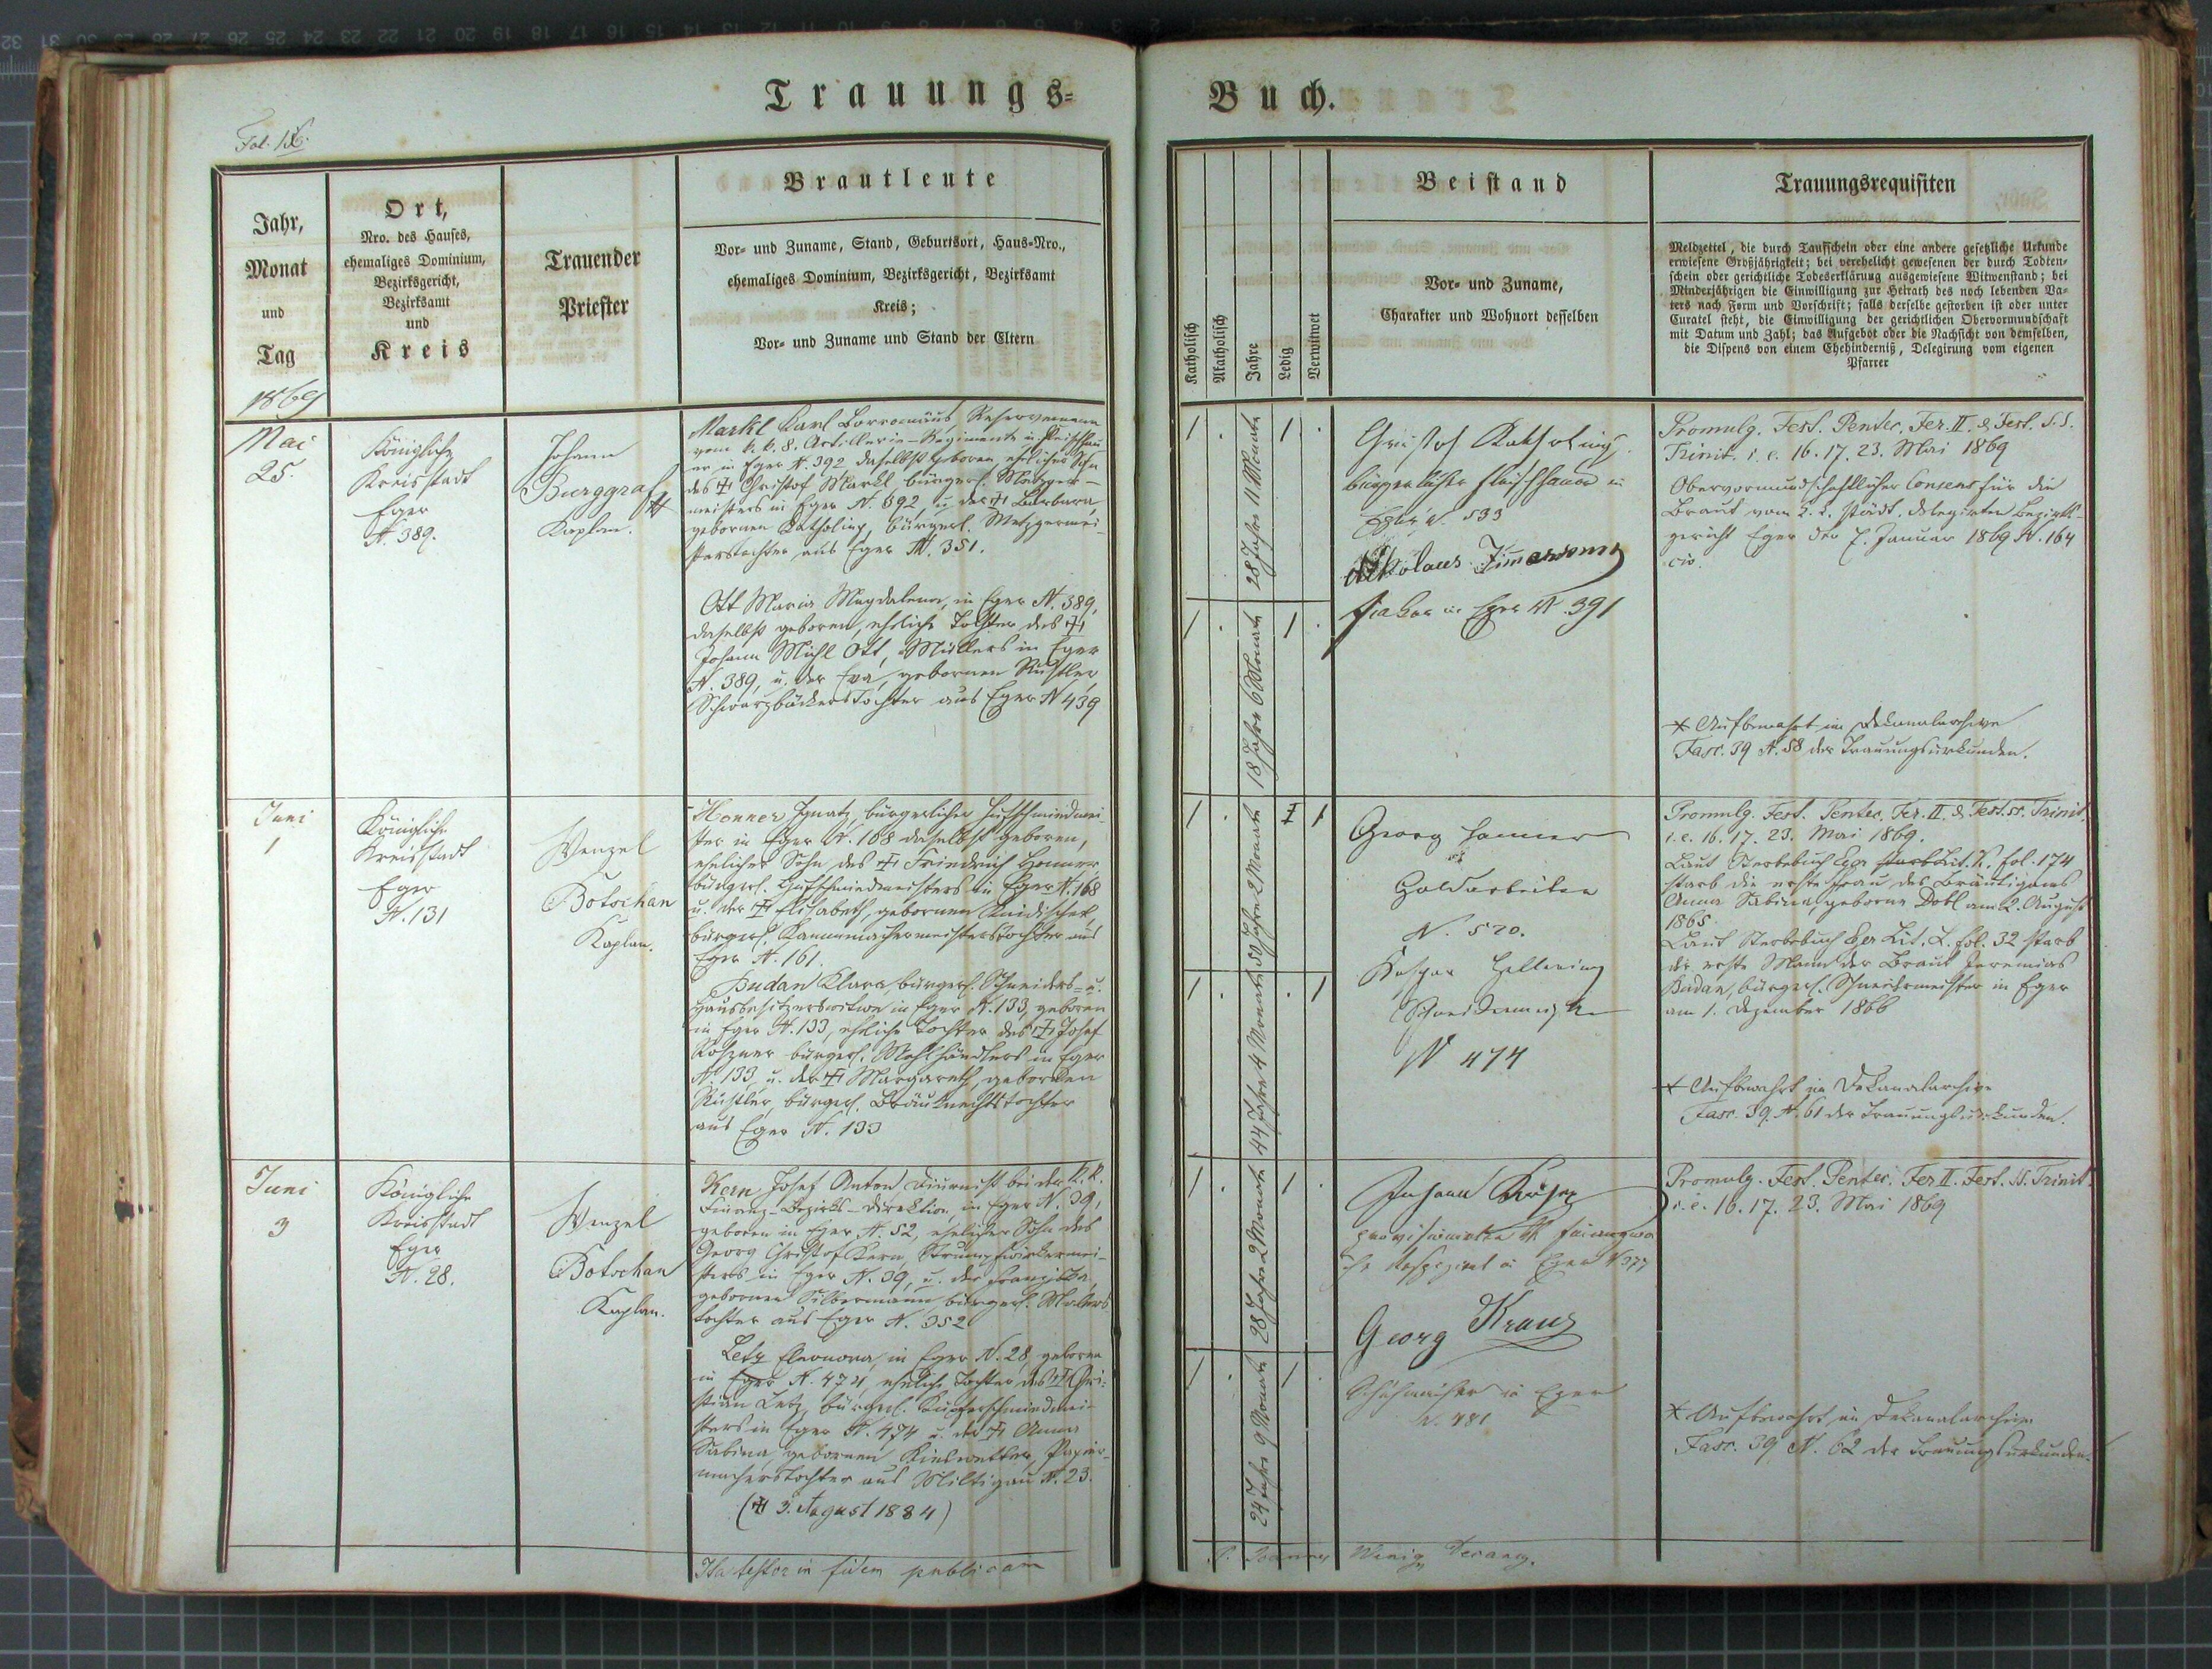 Trauungs=
Fol. 186.
Jahr,
Monat
und
Tag
Ort,
Nro. des Hauses,
ehemaliges Dominium,
Bezirksgericht,
Bezirksamt
und
Kreis
Trauender
Priester
Brautleute
Vor= und Zuname, Stand, Geburtsort, Haus=Nro.,
ehemaliges Dominium, Bezirksgericht, Bezirksamt
Kreis;
Vor= und Zuname und Stand der Eltern
1869
Mai
25.
Königliche
Kreisstadt
Eger
N. 389.
Johann
Burggraf
Kaplan.
Markl Karl Borromäus, Reservemann
vom k. k. 8. Artillerie-Regimente u. Fleischhau-
er in Eger N. 392 daselbst geboren, ehelicher Sohn
des † Christof Markl bürgerl. Metzger-
meisters in Eger N. 392 u. der † Barbara,
gebornen Katholing, bürgerl. Metzgermei-
sterstochter aus Eger N. 351.
Ott Maria Magdalena, in Eger N. 389,
daselbst geboren, eheliche Tochter des †
Johann Michl Ott, Müllers in Eger
N. 389, u. der Eva, gebornen Rustler
Schwarzbäckerstochter aus Eger N 439
Juni
1
Königliche
Kreisstadt
Eger
N. 131
Wenzel
Botschan
Kaplan.
Honner Ignatz, bürgerlicher Hufschmiedmei-
ster in Eger N. 168 daselbst geboren,
ehelicher Sohn des † Friedrich Honner
bürgerl. Hufschmiedmeisters in Eger N. 168
u. der † Elisabeth, gebornen
bürgerl. Kammmachermeisterstochter aus
Eger N. 161.
Budan Klara, bürgerl. Schneiders= u.
Hausbesitzerswitwe in Eger N. 133, geboren
in Eger N. 133, eheliche Tochter des † Josef
bürgerl. Mehlhändlers in Eger
N. 133, u. der † Margareth, gebornen
Rustler, bürgerl. Bräuknechtstochter
aus Eger N. 133
Juni
3
Königliche
Kreisstadt
Eger
N. 28.
Wenzel
Botschan
Kaplan.
Kern Josef Anton, Diurnist bei der k. k.
Finanz-Bezirks-Direktion in Eger N. 39,
geboren in Eger N. 52, ehelicher Sohn des
Georg Christof Kern, Strumpfwirkermei-
sters in Eger N. 39, u. der Franziska,
gebornen Silbermann, bürgerl. Malers-
tochter aus Eger N. 352
Letz Eleonora, in Eger N. 28, geboren
in Eger N. 474, eheliche Tochter des † Chri-
stian Letz, bürgerl. Kupferschmiedmei-
sters in Eger N. 474 u. der † Anna
Sabina, gebornen Kieswetter, Papier-
macherstochter aus Miltigau N. 23.
(† 3. August 1884)
Ita testor in fidem publicam
Buch.
Katholisch
Akatholisch
Jahre
Ledig
Verwitwet
Beistand
Vor= und Zuname,
Charakter und Wohnort desselben
Trauungsrequisiten
Meldzettel, die durch Taufschein oder eine andere gesetzliche Urkunde
erwiesene Großjährigkeit; bei verehelicht gewesenen der durch Todten=
schein oder gerichtliche Todeserklärung ausgewiesene Witwenstand; bei
Minderjährigen die Einwilligung zur Heirath des noch lebenden Va=
ters nach Form und Vorschrift; falls derselbe gestorben ist oder unter
Curatel steht, die Einwilligung der gerichtlichen Obervormundschaft
mit Datum und Zahl; das Aufgebot oder die Nachsicht von demselben,
die Dispens von einem Ehehinderniß, Delegirung vom eigenen
Pfarrer
1 . 28 Jahre 11 Monate 1 .
1 . 18 Jahre 6 Monate 1 .
Christof Katholing
bürgerlicher Fleischhauer in
Eger N. 533
Nikolaus Zimmermann
Fiaker in Eger N. 391
Promulg. Fest. Pentec. Fer. II. & Fest. S.S.
Trinit. i. e. 16. 17. 23. Mai 1869
Obervormundschaftlicher Consens für die
Braut vom k. k. städt. delegirten Bezirks-
gericht Eger ddo 7. Januar 1869 N. 164
civ.
* Aufbewahrt im Dekanalarchive
Fasc. 39 N. 58 der Trauungsurkunden.
1 . 50 Jahre 2 Monate 1
1 . 44 Jahre 4 Monate . 1
Georg Honner
Goldarbeiter
N. 520.
Kaspar
Schneidermeister
N 474
Promulg. Fest. Pentec. Fer. II. & Fest. ss. Trinit.
i. e. 16. 17. 23. Mai 1869.
Laut Sterbebuch Eger Lit. K. fol. 174
starb die erste Frau des Bräutigams
Anna Sabina, geborne Dobl am 2. August
1865.
Laut Sterbebuch Eger Lit. L. fol. 32 starb
der erste Mann der Braut Jeremias
Budan, bürgerl. Schneidermeister in Eger
am 1. Dezember 1866
* Aufbewahrt im Dekanalarchive
Fasc. 39. N. 61 der Trauungsurkunden.
1 . 28 Jahre 2 Monate 1 .
1 . 24 Jahre 9 Monate 1 .
Johann
in Eger N 377
Georg Kraus
in Eger
N. 481
Promulg. Fest. Pentec. Fer II. Fest. SS. Trinit.
i. e. 16. 17. 23. Mai 1869
* Aufbewahrt im Dekanalarchive
Fasc. 39 N. 62 der Trauungsurkunden.
P. Joannes Wenig